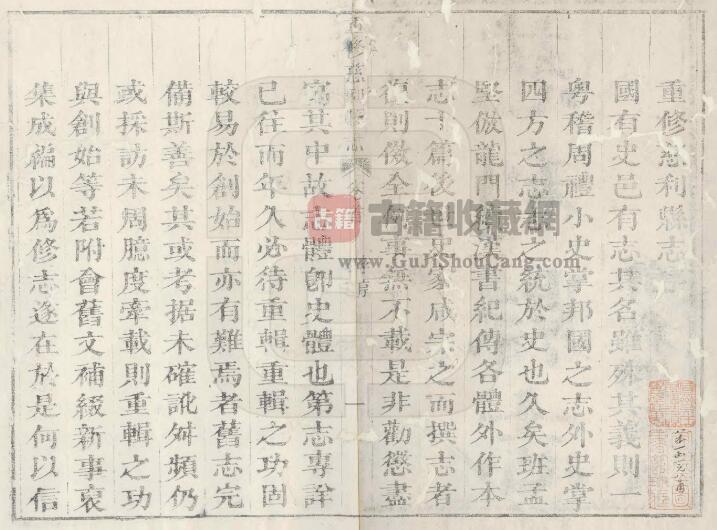 重修慈利縣志
國有史邑有志其名雖殊其義則一
粵稽周禮小史掌邦國之志外史掌
四方之志志之統於史也久矣班孟
堅倣龍門漢書紀傳各體外作本
志十篇後世史家咸宗之而撰志者
復則倣全無不載是非勸懲盡
寓其中故志體即史體也第志專詮
已往而年久必待重輯重輯之功固
較易於創始而亦有難焉者舊志完
備斯善矣其或考据未確訛舛頻仍
或採訪未周臆度牽載則重輯之功
與創始等若附會舊文補綴新事裒
集成編以爲修志遂在於是何以信
序
一
古籍
古籍收藏网
www.GuJiShouCang.com